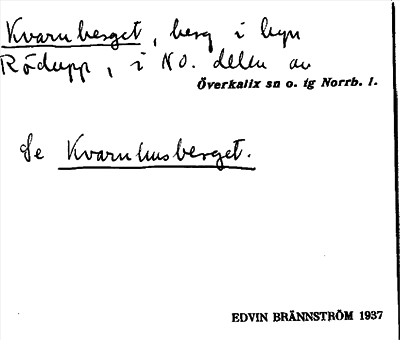 Kvarnberget, berg i byn
Rödupp, i NO. delen av
Överkalix sn o. tg Norrb. l.
Se Kvarnhusberget.
EDVIN BRÄNNSTRÖM 1937